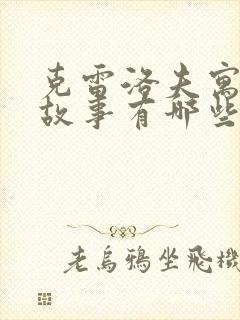 克雷洛夫寓
故事有哪些
老乌鸦坐飞機